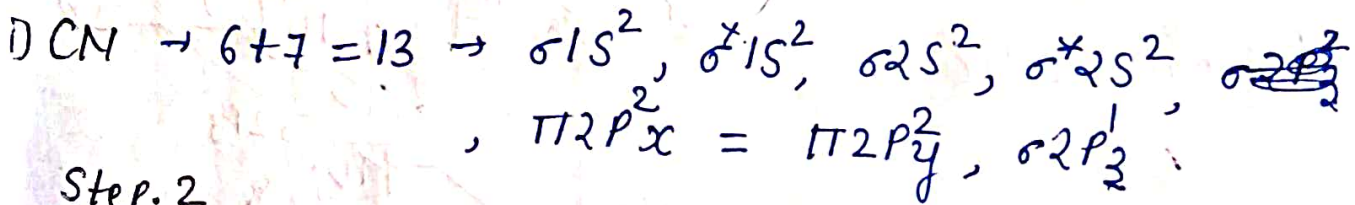 1) CN → 6+7 = 13 → σ1S², σ*1S², σ2S², σ*2S²,
, π2P²x = π2P²y, σ2P¹z
Step. 2